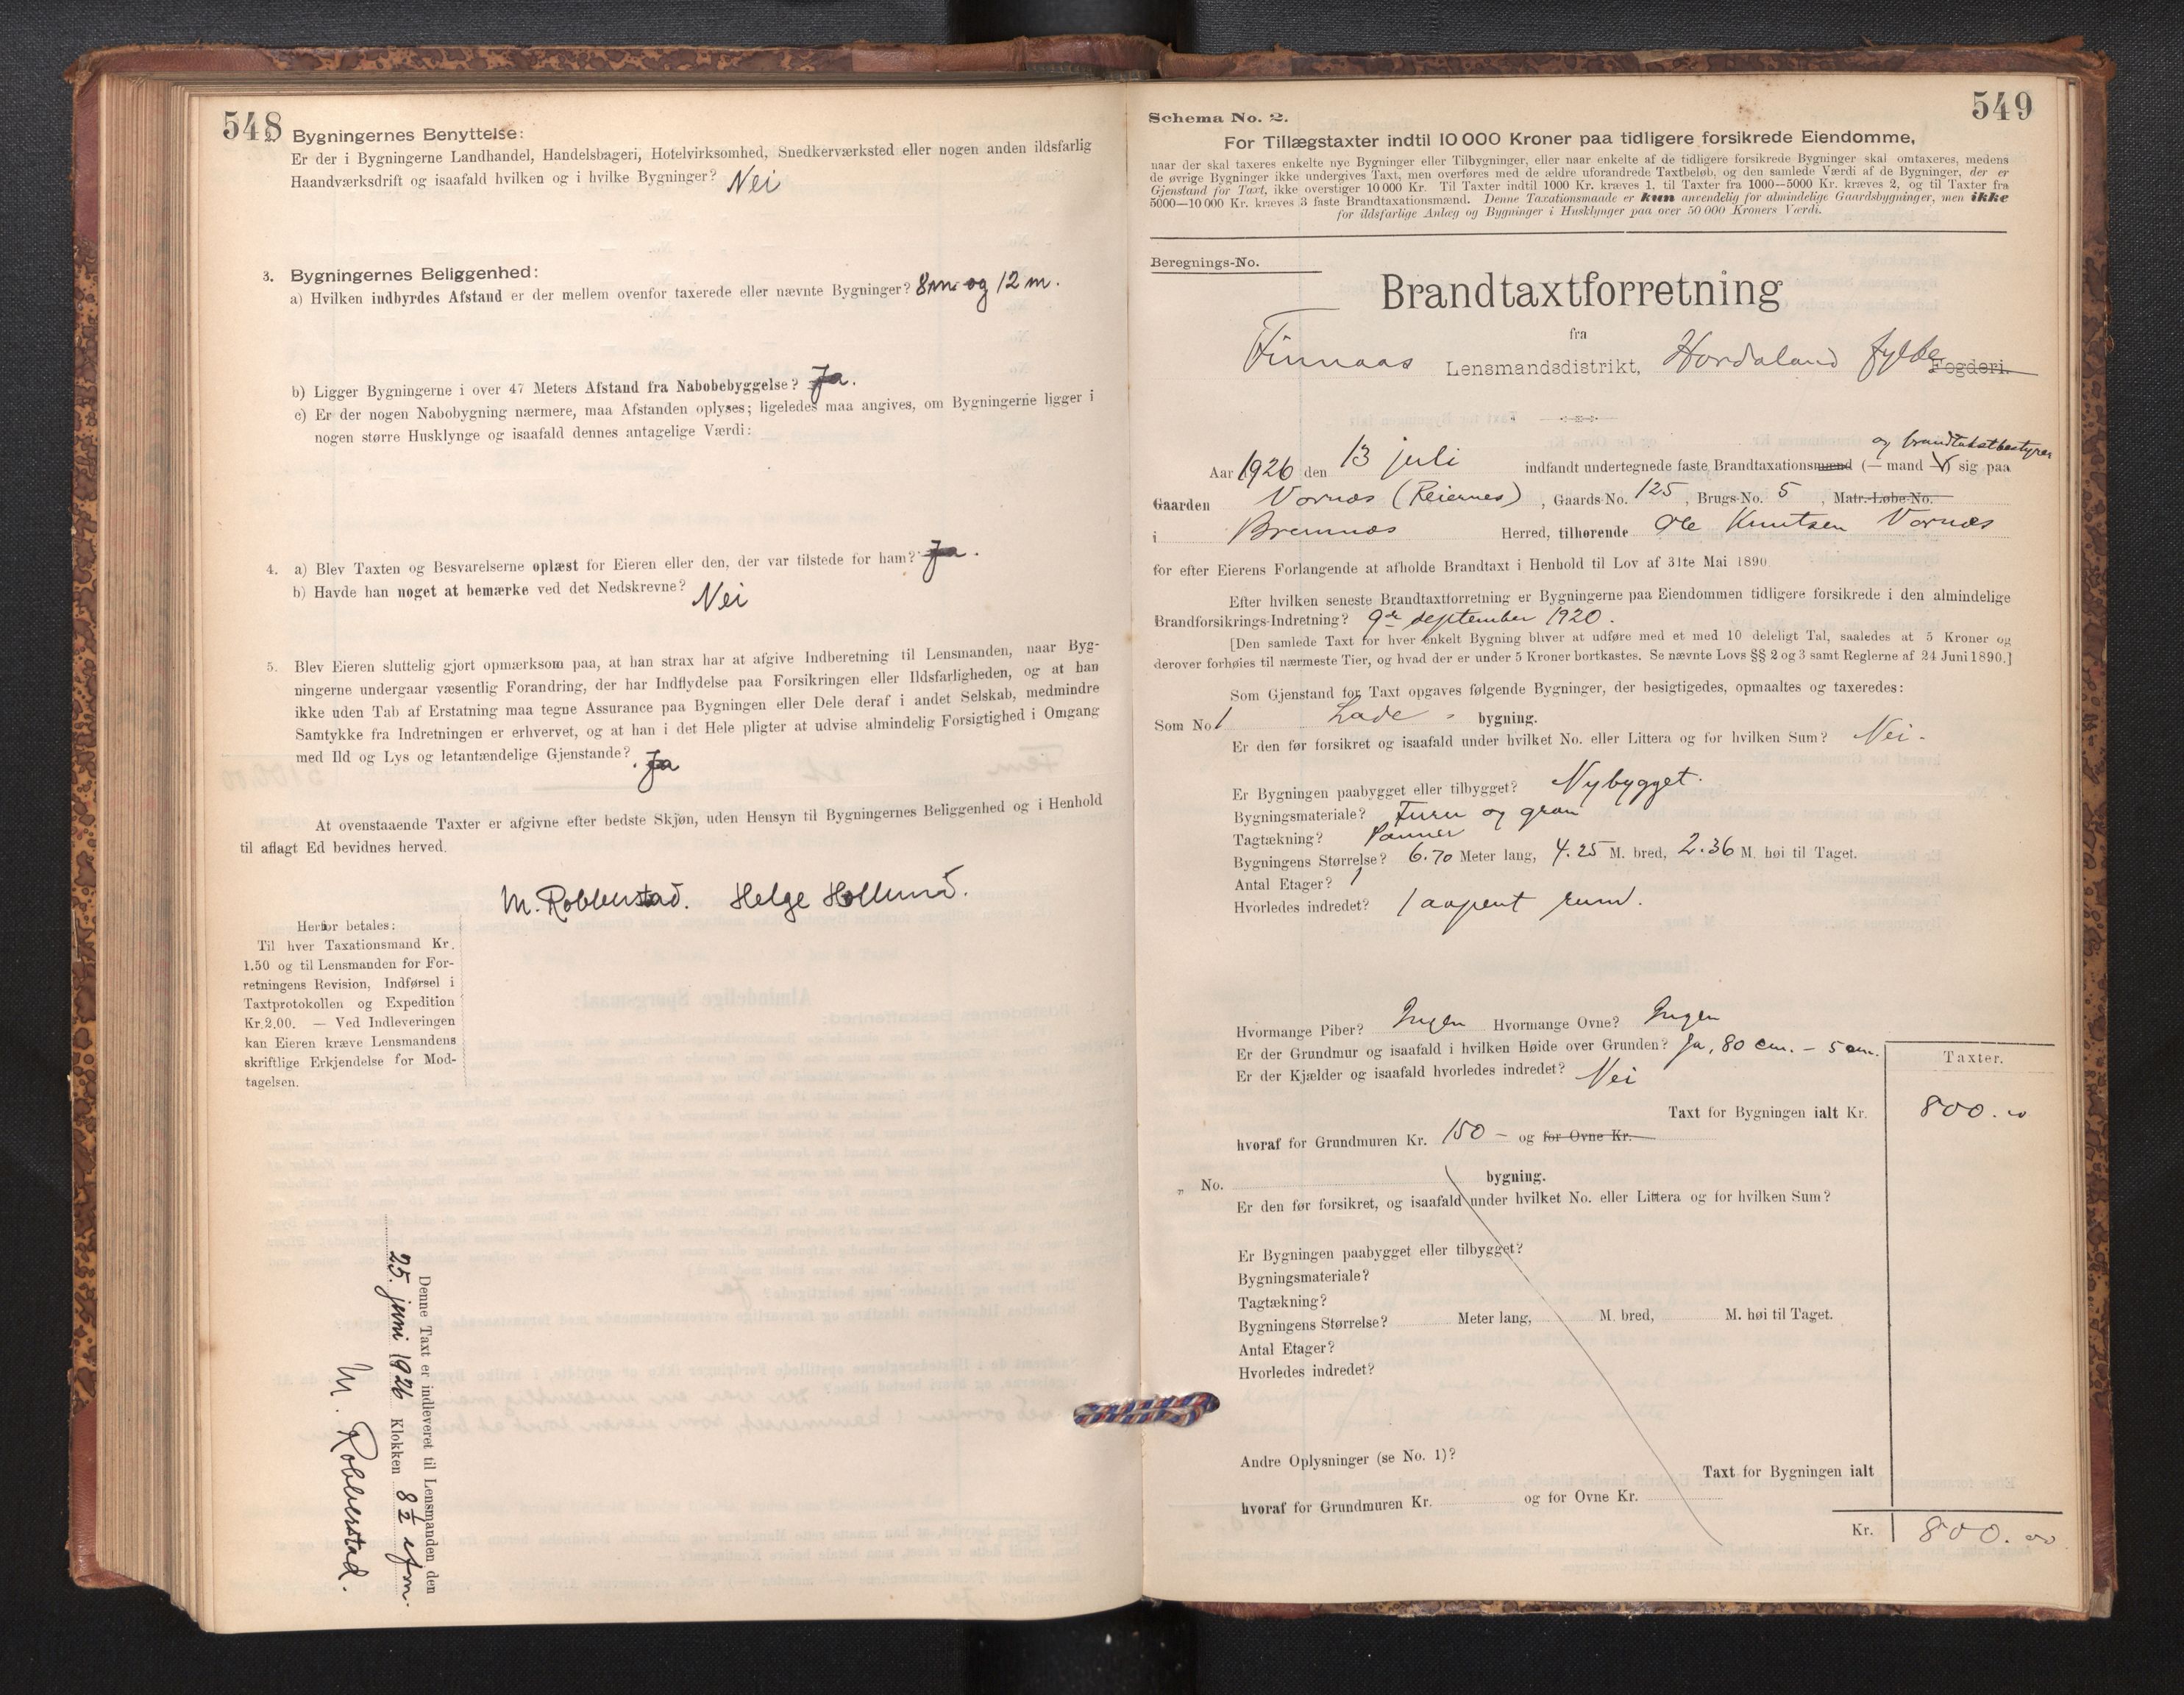 548
Bygningernes Benyttelse:
Er der i Bygningerne Landhandel, Handelsbageri, Hotelvirksomhed, Snedkerværksted eller nogen anden ildsfarlig
Haandværksdrift og isaafald hvilken og i hvilke Bygninger? Nei
3. Bygningernes Beliggenhed:
a) Hvilken indbyrdes Afstand er der mellem ovenfor taxerede eller nævnte Bygninger? 8 m. og 12 m.
b) Ligger Bygningerne i over 47 Meters Afstand fra Nabobebyggelse? Ja.
c) Er der nogen Nabobygning nærmere, maa Afstanden oplyses; ligeledes maa angives, om Bygningerne ligger i
nogen større Husklynge og isaafald dennes antagelige Værdi:
4. a) Blev Taxten og Besvarelserne oplæst for Eieren eller den, der var tilstede for ham? Ja.
b) Havde han noget at bemærke ved det Nedskrevne? Nei
5. Blev Eieren sluttelig gjort opmærksom paa, at han strax har at afgive Indberetning til Lensmanden, naar Byg-
ningerne undergaar væsentlig Forandring, der har Indflydelse paa Forsikringen eller Ildsfarligheden, og at han
ikke uden Tab af Erstatning maa tegne Assurance paa Bygningen eller Dele deraf i andet Selskab, medmindre
Samtykke fra Indretningen er erhvervet, og at han i det Hele pligter at udvise almindelig Forsigtighed i Omgang
med Ild og Lys og letantændelige Gjenstande? Ja
At ovenstaaende Taxter er afgivne efter bedste Skjøn, uden Hensyn til Bygningernes Beliggenhed og i Henhold
til aflagt Ed bevidnes herved.
M. Robberstad. Helge Hollund.
Herfor betales:
Til hver Taxationsmand Kr.
1.50 og til Lensmanden for For-
retningens Revision, Indførsel i
Taxtprotokollen og Expedition
Kr. 2.00. — Ved Indleveringen
kan Eieren kræve Lensmandens
skriftlige Erkjendelse for Mod-
tagelsen.
Denne Taxt er indleveret til Lensmanden den
25. juni 1926 Klokken 8 1/2 efm.
M. Robberstad.
549
Schema No. 2.
For Tillægstaxter indtil 10 000 Kroner paa tidligere forsikrede Eiendomme,
naar der skal taxeres enkelte nye Bygninger eller Tilbygninger, eller naar enkelte af de tidligere forsikrede Bygninger skal omtaxeres, medens
de øvrige Bygninger ikke undergives Taxt, men overføres med de ældre uforandrede Taxtbeløb, og den samlede Værdi af de Bygninger, der er
Gjenstand for Taxt, ikke overstiger 10 000 Kr. Til Taxter indtil 1000 Kr. kræves 1, til Taxter fra 1000—5000 Kr. kræves 2, og til Taxter fra
5000—10 000 Kr. kræves 3 faste Brandtaxationsmænd. Denne Taxationsmaade er kun anvendelig for almindelige Gaardsbygninger, men ikke
for ildsfarlige Anlæg og Bygninger i Husklynger paa over 50 000 Kroners Værdi.
Beregnings-No.
Brandtaxtforretning
fra
Finnaas Lensmandsdistrikt, Hordaland fylke Fogderi.
og brandtakstbestyrer
Aar 1926 den 13 juli indfandt undertegnede faste Brandtaxationsmænd (— mand —) sig paa
Gaarden Vornes (Reiernes), Gaards-No. 125, Brugs-No. 5, Matr.-Løbe-No.
i Bremnes Herred, tilhørende Ole Knutsen Vornes
for efter Eierens Forlangende at afholde Brandtaxt i Henhold til Lov af 31te Mai 1890
Efter hvilken seneste Brandtaxtforretning er Bygningerne paa Eiendommen tidligere forsikrede i den almindelige
Brandforsikrings-Indretning? 9de september 1920.
[Den samlede Taxt for hver enkelt Bygning bliver at udføre med et med 10 deleligt Tal, saaledes at 5 Kroner og
derover forhøies til nærmeste Tier, og hvad der er under 5 Kroner bortkastes. Se nævnte Lovs §§ 2 og 3 samt Reglerne af 24 Juni 1890.]
Som Gjenstand for Taxt opgaves følgende Bygninger, der besigtigedes, opmaaltes og taxeredes:
Som No 1 Lade - bygning.
Er den før forsikret og isaafald under hvilket No. eller Littera og for hvilken Sum? Nei -
Er Bygningen paabygget eller tilbygget? Nybygget.
Bygningsmateriale? Furu og gran
Tagtækning? Panner
Bygningens Størrelse? 6.70 Meter lang, 4.25 M. bred, 2.36 M. høi til Taget.
Antal Etager? 1
Hvorledes indredet? 1 aapent rum.
Hvormange Piber? Ingen Hvormange Ovne? Ingen
Er der Grundmur og isaafald i hvilken Høide over Grunden? Ja, 80 cm. - 5 cm.
Er der Kjælder og isaafald hvorledes indredet? Nei
Taxter.
Taxt for Bygningen ialt Kr. 800.00
hvoraf for Grundmuren Kr. 150 - og for Ovne Kr.
„ No. bygning.
Er den før forsikret, og isaafald under hvilket No. eller Littera og for hvilken Sum?
Er Bygningen paabygget eller tilbygget?
Bygningsmateriale?
Tagtækning?
Bygningens Størrelse? Meter lang, M. bred, M. høi til Taget.
Antal Etager?
Hvorledes indredet?
Andre Oplysninger (se No. 1)?
Taxt for Bygningen ialt
hvoraf for Grundmuren Kr. og for Ovne Kr.
Kr. 800.00